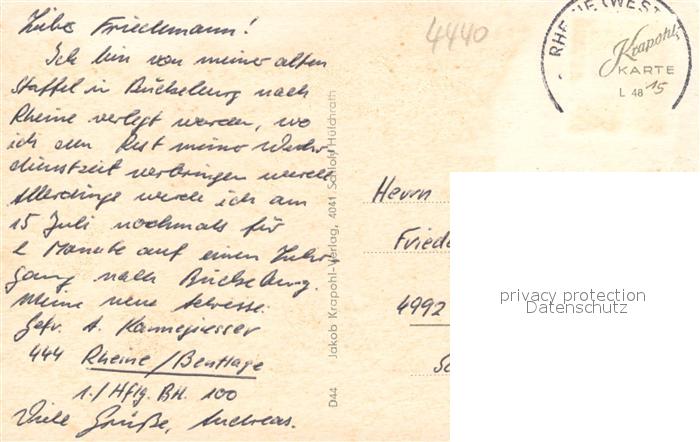 Lieber Friedemann!
Ich bin von meiner alten
Staffel in Bückeburg nach
Rheine verlegt worden, wo
ich den Rest meiner Wehr-
dienstzeit verbringen werde.
Allerdings werde ich am
15 Juli nochmals für
2 Monate auf einen Lehr-
gang nach Bückeburg.
Meine neue Adresse:
Gefr. A. Kannegiesser
444 Rheine/Bentlage
1./Hflg. BH. 100
Viele Grüße, Andreas.
D44 Jakob Krapohl-Verlag, 4041 Schloß Hülchrath
4440
RHEINE (WEST
Krapohl-
KARTE
L 48 15
Herrn
Friede
4992
privacy protection
Datenschutz